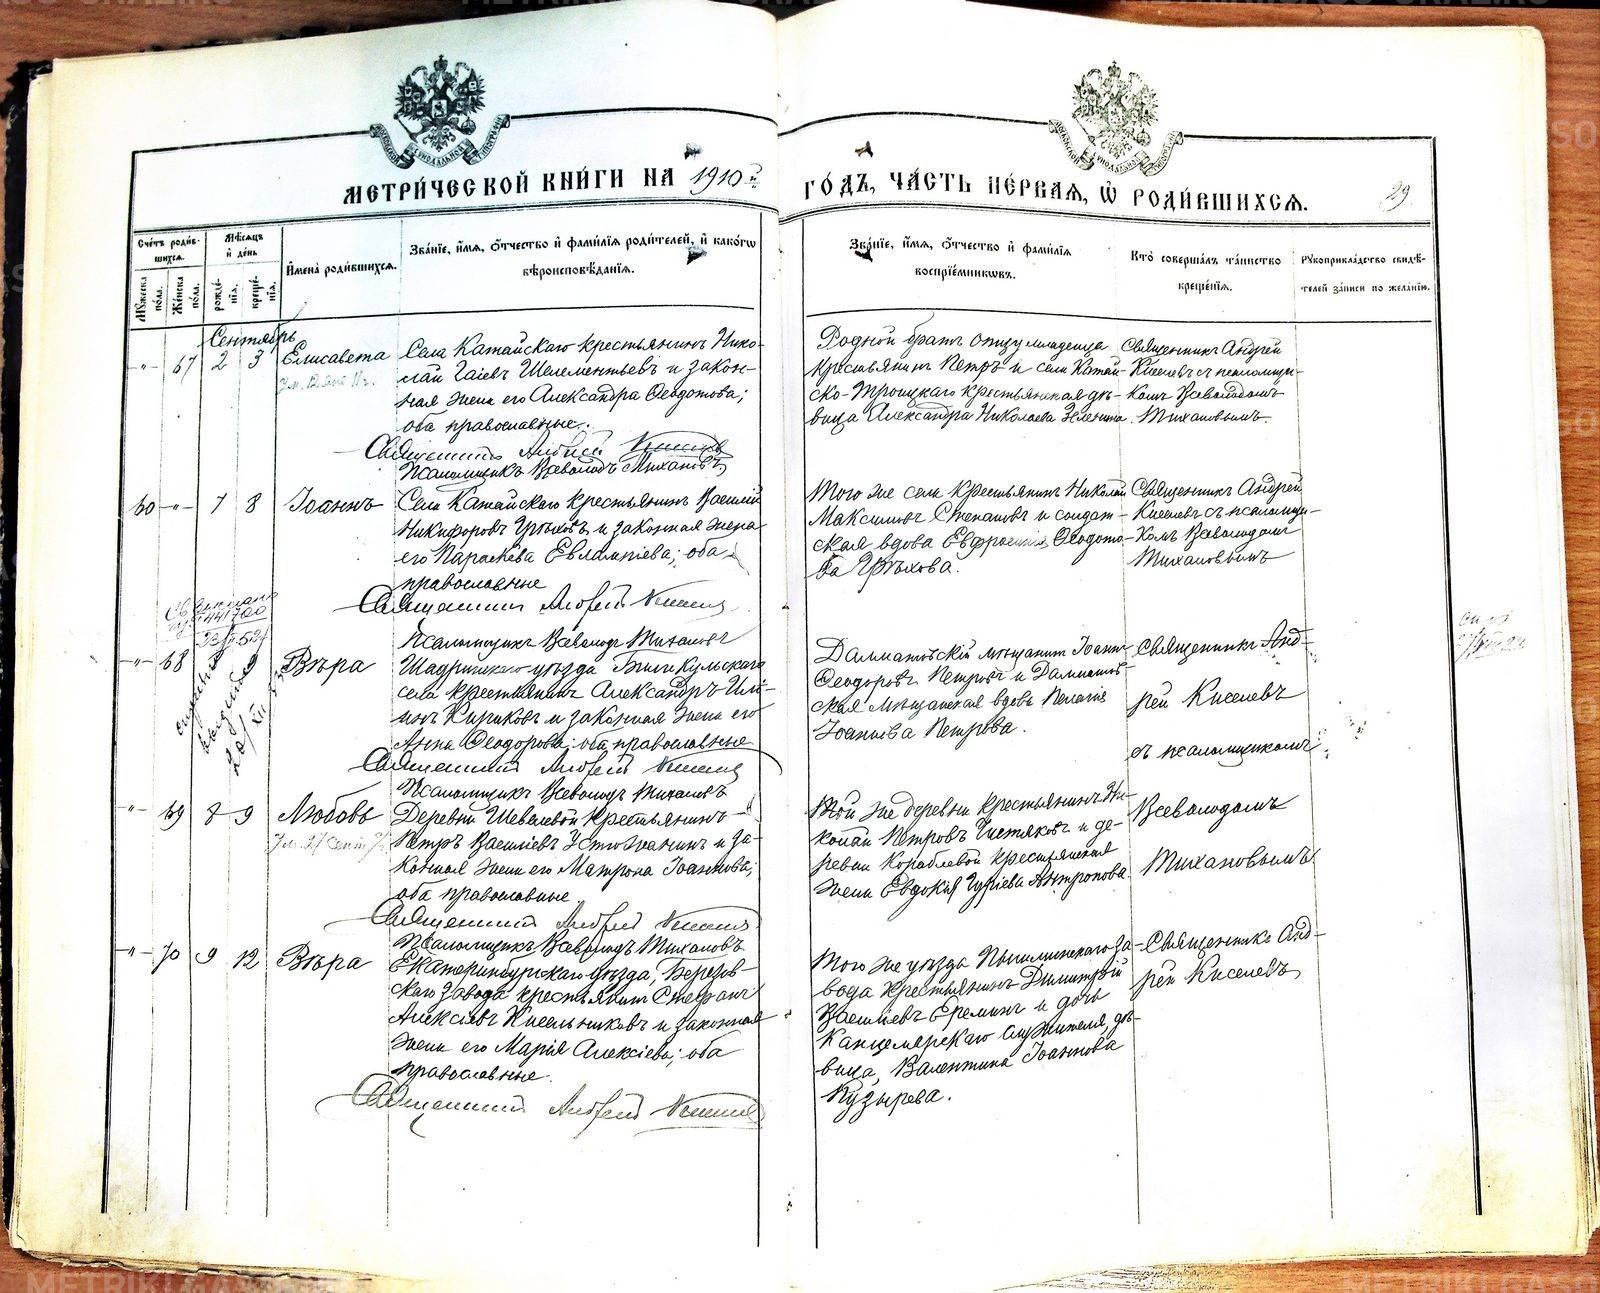 МЕТРИ́ЧЕСКОЙ КНИ́ГИ НА 1910 й
ГО́ДЪ, ЧА́СТЬ ПЕ́РВАЯ, Ѿ РОДИ́ВШИХСЯ.
29
Сче́тъ роди́в-
шихся.
Мꙋжеска по́ла.
Же́нска по́ла.
Мѣ́сяцъ
и де́нь
рожде́-
нїя.
креще́-
нїя.
Имена̀ роди́вшихся.
Зва́нїе, и́мя, ѻ́тчество и фами́лїя роди́телей, и како́гѡ
вѣроисповѣ́данїя.
Зва́нїе, и́мя, ѻ́тчество и фами́лїя
воспрїе́мникѡвъ.
Кто̀ соверша́лъ та́инство
креще́нїя.
Рꙋкоприкла́дство свидѣ́-
телей за́писи по жела́нїю.
Сентябрь
-"- 67 2 3 Елисавета
Села Катайскаго крестьянинъ Нико-
лай Гаіевъ Шелементьевъ и закон-
ная жена его Александра Ѳеодотова;
оба православные.
Священникъ Андрей Киселевъ
Псаломщикъ Всеволодъ Тихановъ
Родной братъ отцу младенца
крестьянинъ Петръ и села Катай-
ско-Троицкаго крестьянская дѣ-
вица Александра Николаева Зеленина.
Священникъ Андрей
Киселевъ съ псаломщи-
комъ Всеволодомъ
Тихановымъ.
60 -"- 7 8 Іоаннъ
Села Катайскаго крестьянинъ Василій
Никифоровъ Грѣховъ и законная жена
его Параскева Евлампіева; оба
православные
Священникъ Андрей Киселевъ
Псаломщикъ Всеволодъ Тихановъ
Того же села крестьянинъ Николай
Максимовъ Степановъ и солдат-
ская вдова Евфросинія Ѳеодото-
ва Грѣхова.
Священникъ Андрей
Киселевъ съ псаломщи-
комъ Всеволодомъ
Тихановымъ
-"- 68 9 Вѣра
Шадринскаго уѣзда
села крестьянинъ Александръ Иль-
инъ Кириковъ и законная жена его
Анна Ѳеодорова; оба православные
Священникъ Андрей Киселевъ
Псаломщикъ Всеволодъ Тихановъ
Далматовскій мѣщанинъ Іоаннъ
Ѳеодоровъ Петровъ и Далматов-
ская мѣщанская вдова Пелагія
Іоаннова Петрова.
Священникъ Анд-
рей Киселевъ
съ псаломщикомъ
-"- 69 8 9 Любовь
Деревни Шевелевой крестьянинъ
Петръ Васильевъ Устюжанинъ и за-
конная жена его Матрона Іоаннова;
оба православные
Священникъ Андрей Киселевъ
Псаломщикъ Всеволодъ Тихановъ
Той же деревни крестьянинъ Ни-
колай Петровъ Чистяковъ и де-
ревни Кораблевой крестьянская
жена Евдокія Гуріева Антропова.
Всеволодомъ
Тихановымъ
-"- 70 9 12 Вѣра
Екатеринбургскаго уѣзда, Березов-
скаго завода крестьянинъ Стефанъ
Алексіевъ Кисельниковъ и законная
жена его Марія Алексіева; оба
православные.
Священникъ Андрей Киселевъ
Того же уѣзда Пышминскаго за-
вода крестьянинъ Димитрій
Васильевъ Ереминъ и дочь
Канцелярскаго служителя, дѣ-
вица, Валентина Іоаннова
Пузырева.
Священникъ Анд-
рей Киселевъ